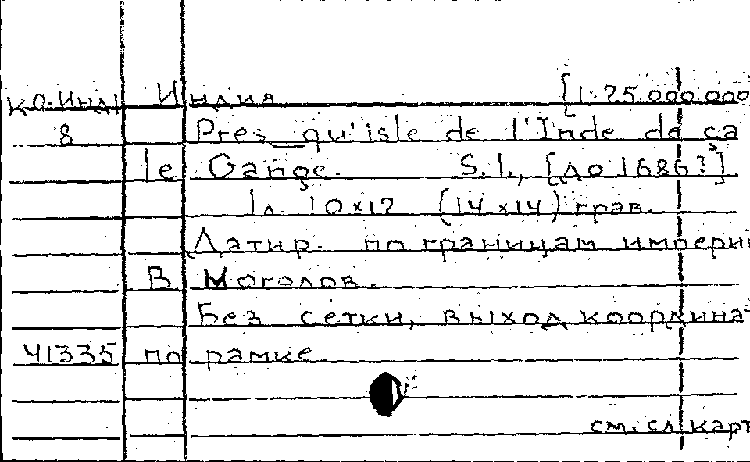 КО.Инд Индия [1:25.000.000
8 Pres qu'isle de l'Inde de ca
le Gange. S.l., [до 1686?]
1л. 10x12 (14x14) грав.
Датир. по границам импери
В. Моголов.
Без сетки, выход координа
Ч1335 по рамке
см. сл. карт